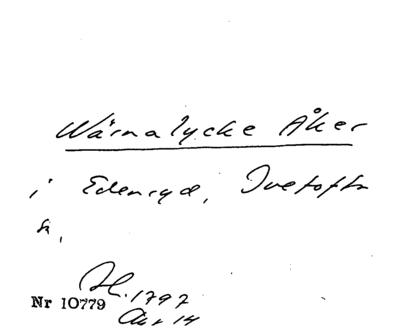 Wärnalycke Åker
i Edenryd, Ivetofta
sn.
Sk. 1797
Nr 10779
Akt 14